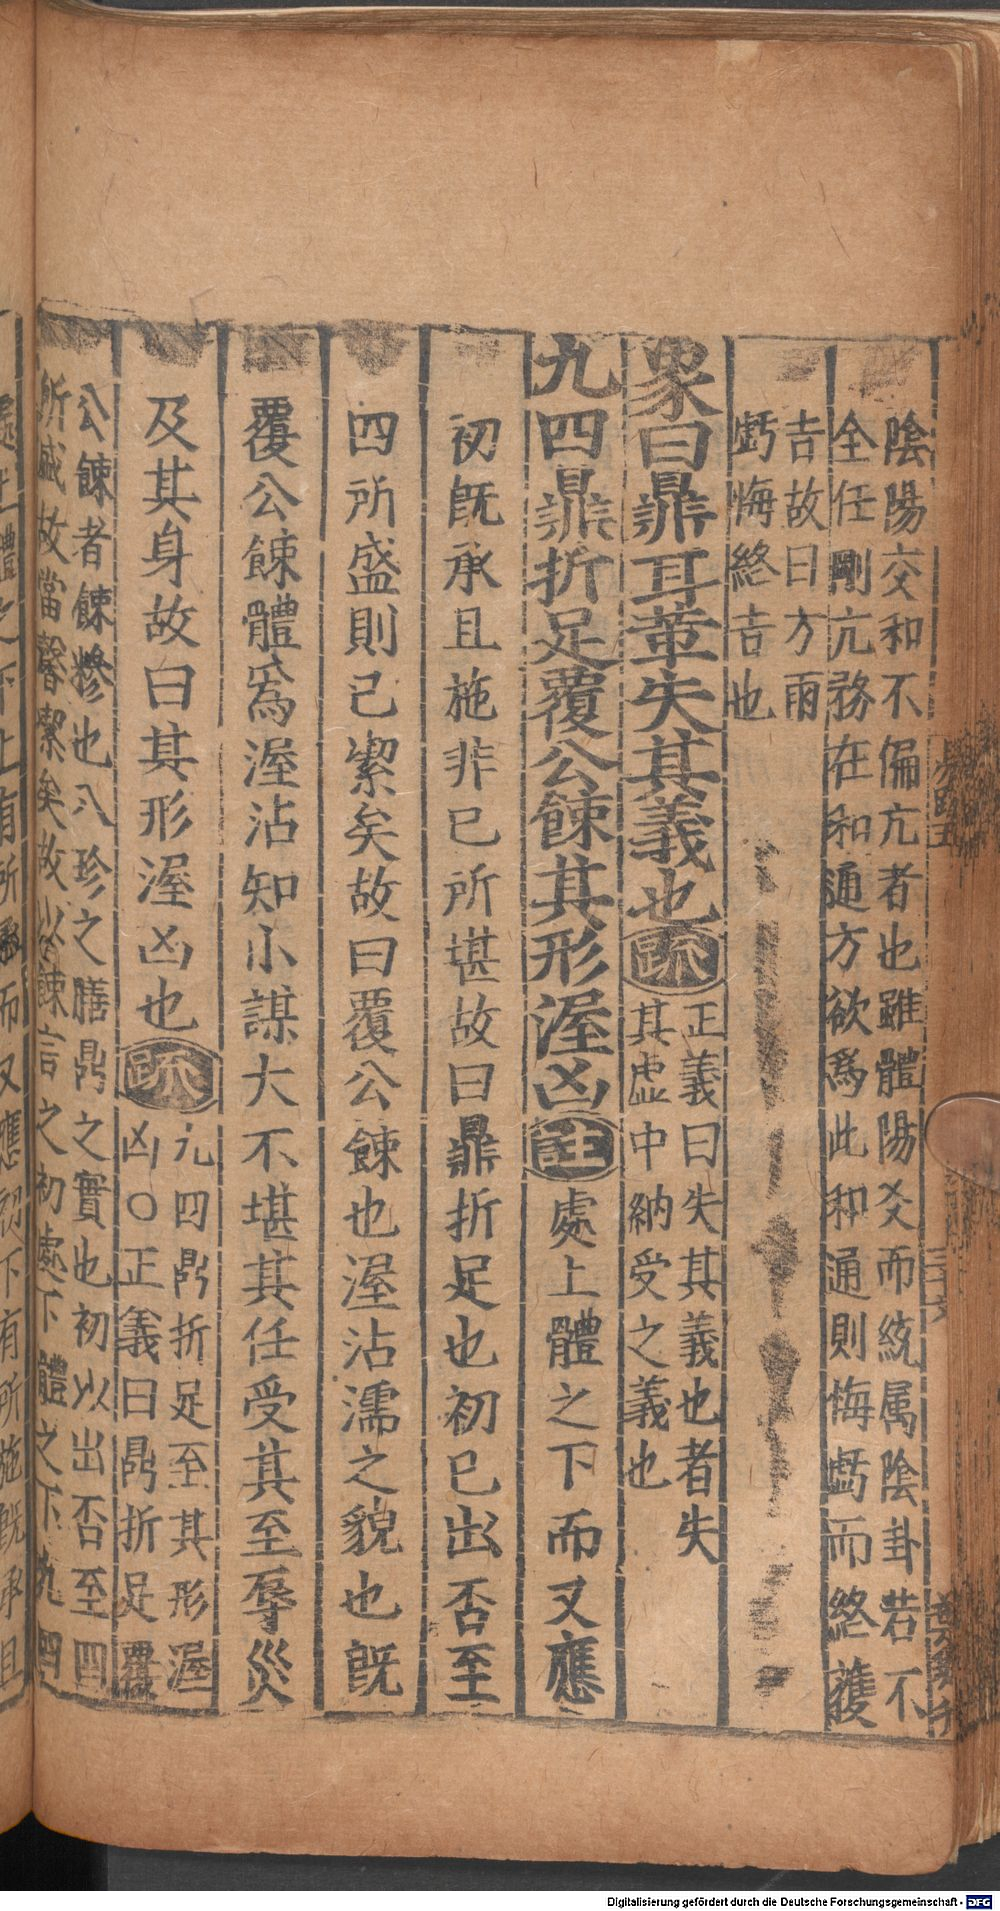 陰陽交和不偏亢者也雖體陽爻而統属陰卦若不
全任剛亢務在和通方欲爲此和通則悔虧而終獲
吉故曰方雨
虧悔終吉也
象曰鼎耳革失其義也疏正義曰失其義也者失
其虛中納受之義也
九四鼎折足覆公餗其形渥凶註處上體之下而又應
初旣承且施非已所堪故曰鼎折足也初已出否至
四所盛則己潔矣故曰覆公餗也渥沾濡之貌也旣
覆公餗體爲渥沾知小謀大不堪其任受其至辱災
及其身故曰其形渥凶也疏九四鼎折足至其形渥
凶○正義曰鼎折足覆
公餗者餗糝也八珍之膳鼎之實也初以出否至四
所盛故當馨潔矣故以餗言之初處下體之下九四
處上體之下上有所承而又應初下有所施旣承且
Digitalisierung gefördert durch die Deutsche Forschungsgemeinschaft - DFG